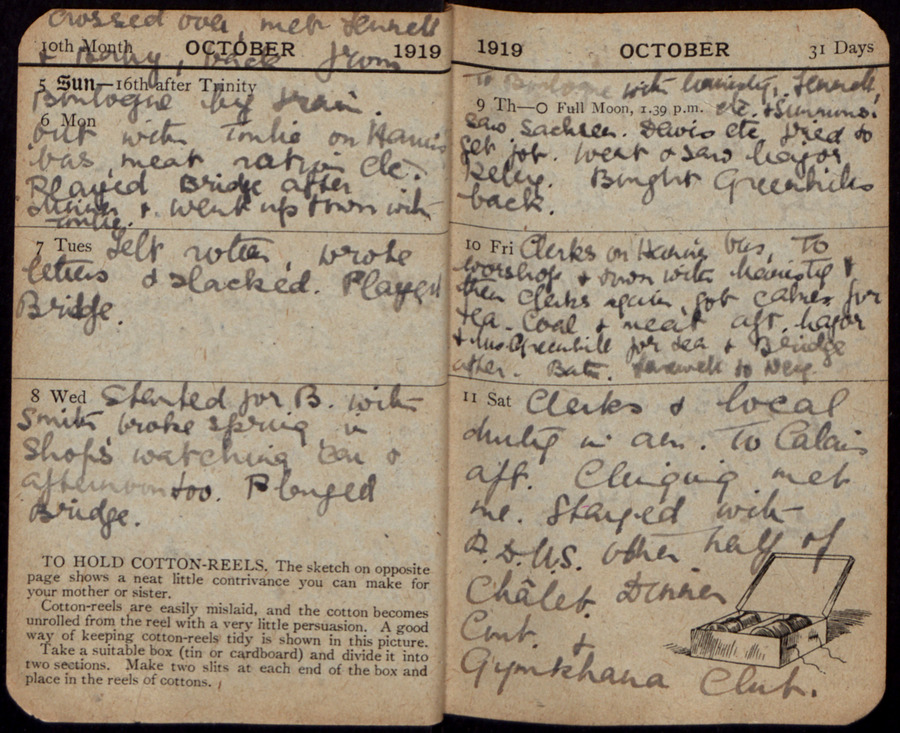 Crossed over, met
10th Month OCTOBER 1919
& Baby, back from
5 Sun—16th after Trinity
Boulogne by train
6 Mon
out with on
bus, meat ration etc.
Played Bridge after
dinner & went up town with
7 Tues Felt rotten, wrote
letters & slacked. Played
Bridge.
8 Wed Started for B. with
Smith broke spring, in
Shops watching car &
afternoon too. Played
Bridge.
TO HOLD COTTON-REELS. The sketch on opposite
page shows a neat little contrivance you can make for
your mother or sister.
Cotton-reels are easily mislaid, and the cotton becomes
unrolled from the reel with a very little persuasion. A good
way of keeping cotton-reels tidy is shown in this picture.
Take a suitable box (tin or cardboard) and divide it into
two sections. Make two slits at each end of the box and
place in the reels of cottons.
1919 OCTOBER 31 Days
To Boulogne with
9 Th—O Full Moon, 1.39 p.m. etc. & Simmons.
saw Sachsen. Davis etc tried to
get job. Went & saw Major
Kelly. Bought Greenhills
back.
10 Fri Clerks on bus, To
workshop & town with &
then Clerks again, got cakes for
tea. Coal & meat aft. Major
& Mrs Greenhill for tea & Bridge
after. Bath. Farewell to
11 Sat Clerks & local
duty in am. To Calais
aft. met
me. Stayed with
A.D.V.S. other half of
Châlet. Dinner
&
Gymkhana Club.